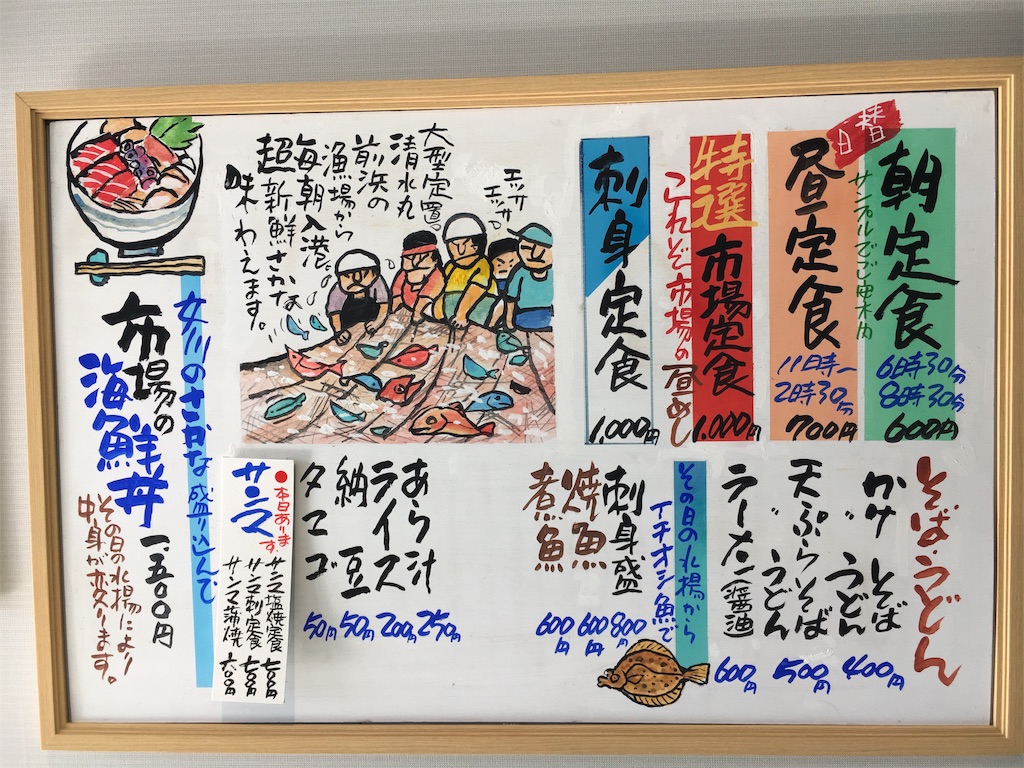 日替
朝定食
6時30分
8時30分
600円
サンプルでご案内
昼定食
11時〜
2時30分
700円
特選
市場定食
1.000円
これぞ市場の昼めし
刺身定食
1.000円
エッサ
エッサ
大型定置
清水丸
前浜の
漁場から
毎朝入港
超新鮮さかな
味わえます。
女川のさかな盛り込んで
市場の
海鮮丼 一、五〇〇円
その日の水揚により
中身が変ります。
そば・うどん
かけ そば
うどん
400円
天ぷらそば
うどん
500円
ラーメン(醤油
600円
その日の水揚から
イチオシ魚で
刺身盛
800円
焼魚
600円
煮魚
600円
あら汁
250円
ライス
200円
納豆
50円
タマゴ
50円
●本日あります
サンマ
サンマ塩焼定食 七〇〇円
サンマ刺定食 七〇〇円
サンマ蒲焼 六〇〇円